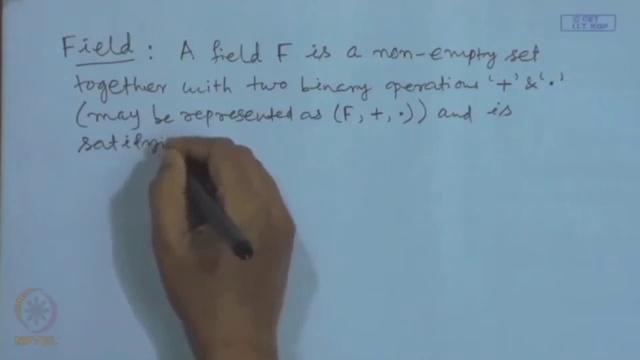 © CET
I.I.T. KGP
Field : A field F is a non-empty set
together with two binary operations '+' & '.'
(may be represented as (F, +, .)) and is
satifyi
NPTEL